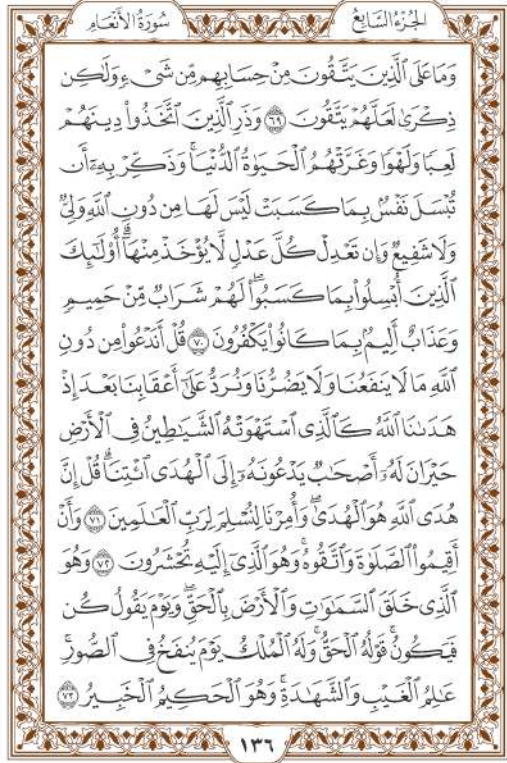 سُورَةُ الأَنْعَامِ الجُزْءُ السَّابِعُ
وَمَا عَلَى ٱلَّذِينَ يَتَّقُونَ مِنْ حِسَابِهِم مِّن شَىْءٍ وَلَٰكِن
ذِكْرَىٰ لَعَلَّهُمْ يَتَّقُونَ ٦٩ وَذَرِ ٱلَّذِينَ ٱتَّخَذُوا۟ دِينَهُمْ
لَعِبًا وَلَهْوًا وَغَرَّتْهُمُ ٱلْحَيَوٰةُ ٱلدُّنْيَا ۚ وَذَكِّرْ بِهِۦٓ أَن
تُبْسَلَ نَفْسٌۢ بِمَا كَسَبَتْ لَيْسَ لَهَا مِن دُونِ ٱللَّهِ وَلِىٌّ
وَلَا شَفِيعٌ وَإِن تَعْدِلْ كُلَّ عَدْلٍ لَّا يُؤْخَذْ مِنْهَآ ۗ أُو۟لَٰٓئِكَ
ٱلَّذِينَ أُبْسِلُوا۟ بِمَا كَسَبُوا۟ ۖ لَهُمْ شَرَابٌ مِّنْ حَمِيمٍ
وَعَذَابٌ أَلِيمٌۢ بِمَا كَانُوا۟ يَكْفُرُونَ ٧٠ قُلْ أَنَدْعُوا۟ مِن دُونِ
ٱللَّهِ مَا لَا يَنفَعُنَا وَلَا يَضُرُّنَا وَنُرَدُّ عَلَىٰٓ أَعْقَابِنَا بَعْدَ إِذْ
هَدَىٰنَا ٱللَّهُ كَٱلَّذِى ٱسْتَهْوَتْهُ ٱلشَّيَٰطِينُ فِى ٱلْأَرْضِ
حَيْرَانَ لَهُۥٓ أَصْحَٰبٌ يَدْعُونَهُۥٓ إِلَى ٱلْهُدَى ٱئْتِنَا ۗ قُلْ إِنَّ
هُدَى ٱللَّهِ هُوَ ٱلْهُدَىٰ ۖ وَأُمِرْنَا لِنُسْلِمَ لِرَبِّ ٱلْعَٰلَمِينَ ٧١ وَأَنْ
أَقِيمُوا۟ ٱلصَّلَوٰةَ وَٱتَّقُوهُ ۚ وَهُوَ ٱلَّذِىٓ إِلَيْهِ تُحْشَرُونَ ٧٢ وَهُوَ
ٱلَّذِى خَلَقَ ٱلسَّمَٰوَٰتِ وَٱلْأَرْضَ بِٱلْحَقِّ ۖ وَيَوْمَ يَقُولُ كُن
فَيَكُونُ ۚ قَوْلُهُ ٱلْحَقُّ ۚ وَلَهُ ٱلْمُلْكُ يَوْمَ يُنفَخُ فِى ٱلصُّورِ ۚ
عَٰلِمُ ٱلْغَيْبِ وَٱلشَّهَٰدَةِ ۚ وَهُوَ ٱلْحَكِيمُ ٱلْخَبِيرُ ٧٣
١٣٦